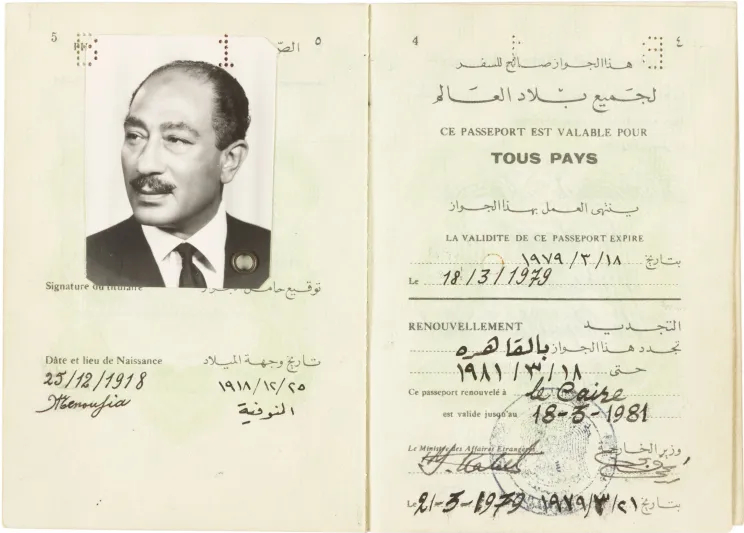 5
٥
Signature du titulaire
توقيع حامل الجواز
Dâte et lieu de Naissance
تاريخ وجهة الميلاد
25/12/1918
١٩١٨/١٢/٢٥
Menoufia
المنوفية
4
٤
هذا الجواز صالح للسفر
لجميع بلاد العالم
CE PASSEPORT EST VALABLE POUR
TOUS PAYS
ينتهى العمل بهذا الجواز
LA VALIDITE DE CE PASSEPORT EXPIRE
بتاريخ ١٩٧٩/٣/١٨
Le 18/3/1979
RENOUVELLEMENT
التجديد
تجدد هذا الجواز بالقاهره
حتى ١٩٨١/٣/١٨
Ce passeport renouvelé à le Caire
est valide jusqu'au 18-3-1981
Le Ministre des Affaires Etrangères
وزير الخار
Le 21-3-1979
بتاريخ ١٩٧٩/٣/٢١